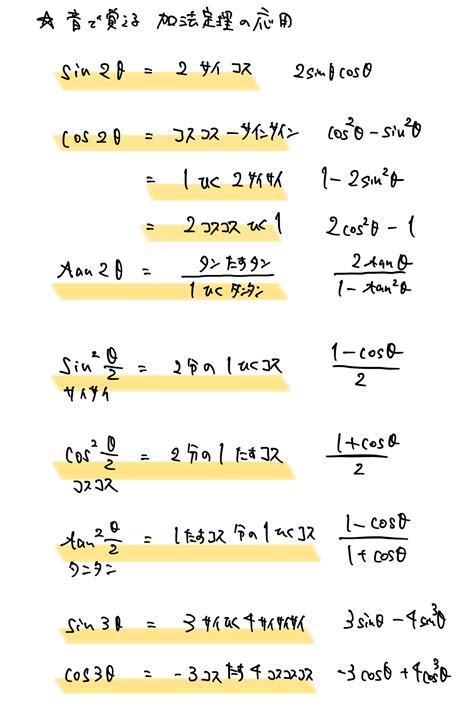 ☆ 音で覚える 加法定理の応用
sin2θ = 2 サイ コス 2sinθcosθ
cos2θ = コスコス−サインサイン cos²θ−sin²θ
= 1 ひく 2 サイサイ 1−2sin²θ
= 2 コスコス ひく 1 2cos²θ−1
tan2θ = タン たす タン / 1 ひく タンタン 2tanθ / 1−tan²θ
sin²θ/2 = 2分の1ひくコス 1−cosθ / 2
サイサイ
cos²θ/2 = 2分の1たすコス 1+cosθ / 2
コスコス
tan²θ/2 = 1たすコス分の1ひくコス 1−cosθ / 1+cosθ
タンタン
sin3θ = 3サイひく4サイサイサイ 3sinθ−4sin³θ
cos3θ = −3コスたす4コスコスコス −3cosθ+4cos³θ